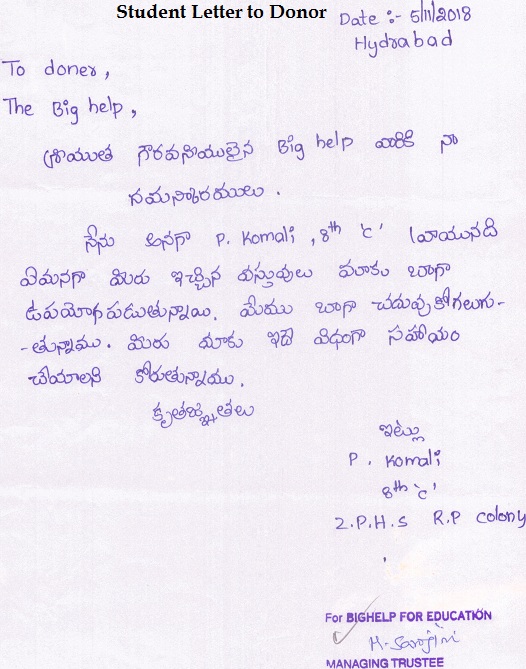 Student Letter to Donor
Date :- 5/11/2018
Hydrabad
To doner,
The Big help,
శ్రీయుత గౌరవనీయులైన Big help వారికి నా
నమస్కారములు.
నేను అనగా P. Komali, 8th 'c' వ్రాయునది
ఏమనగా మీరు ఇచ్చిన వస్తువులు మాకు బాగా
ఉపయోగపడుతున్నాయి. మేము బాగా చదువుకోగలుగు-
-తున్నాము. మీరు మాకు ఇదే విధంగా సహాయం
చేయాలని కోరుతున్నాము.
కృతజ్ఞతలు
ఇట్లు
P. Komali
8th 'c'
Z.P.H.S R.P colony
For BIGHELP FOR EDUCATION
M. Sarojini
MANAGING TRUSTEE